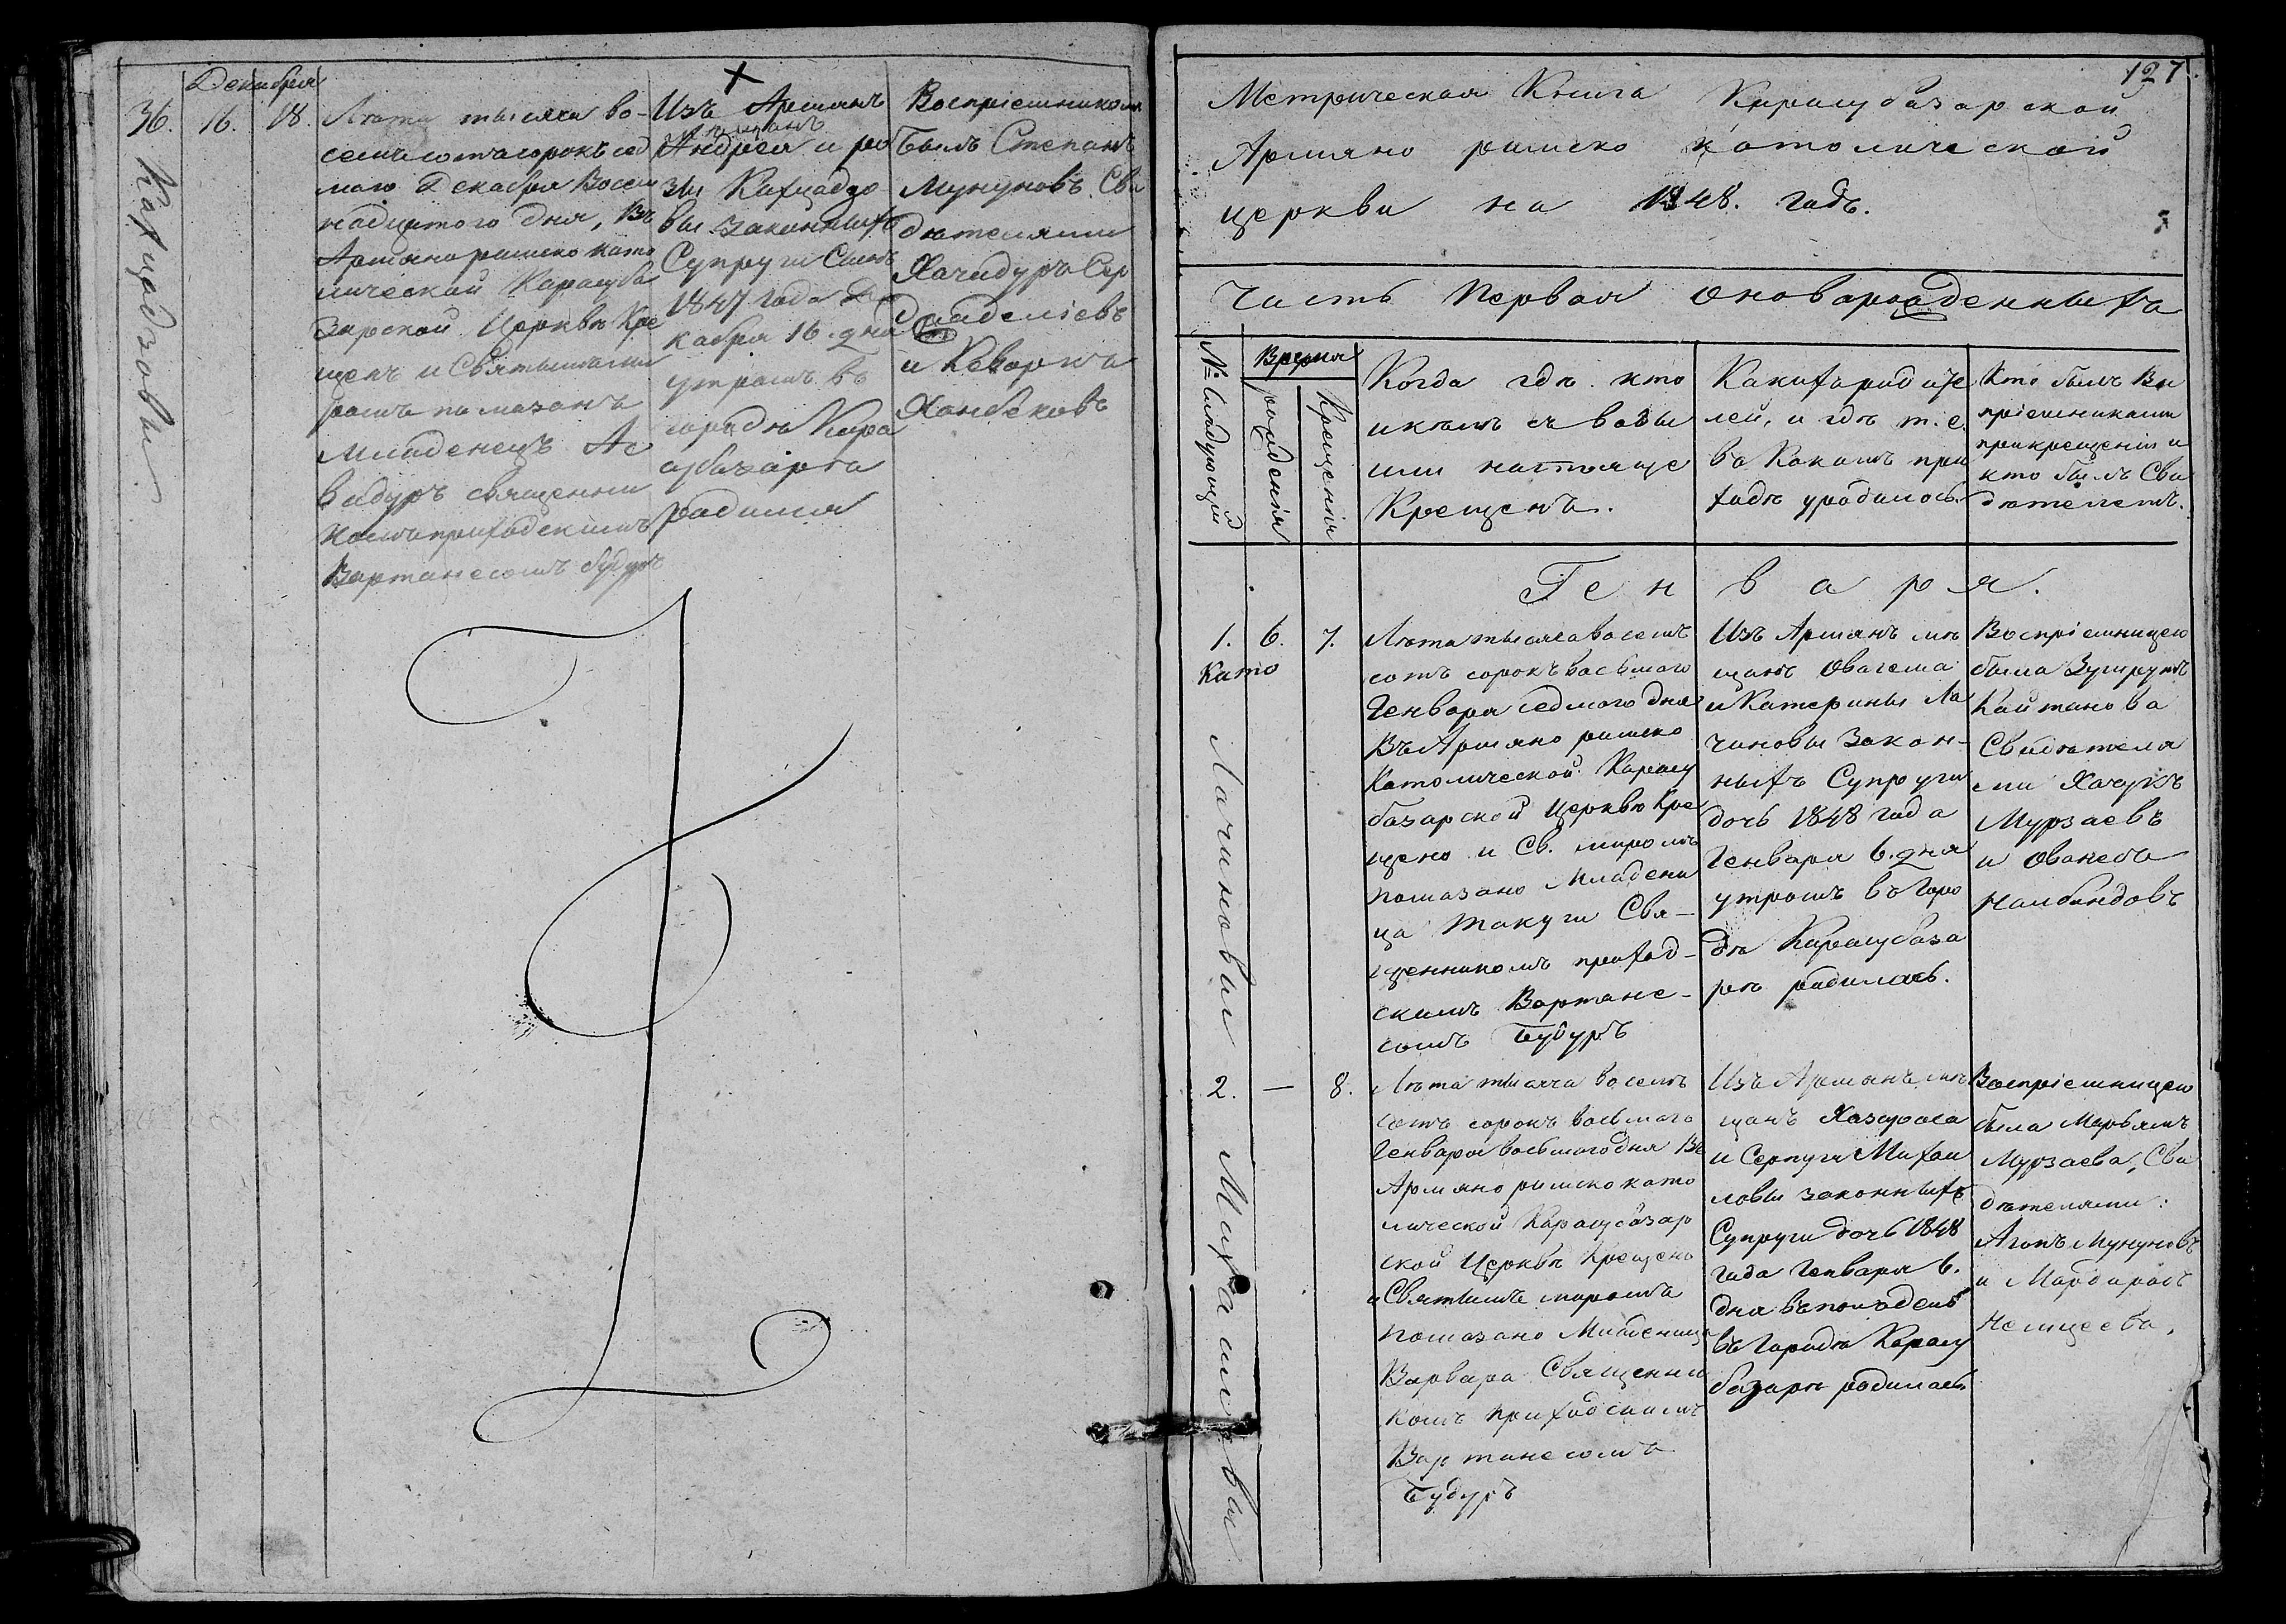 Декабря
36. 16. 18.
Кафцадзовы
Лѣта тысяча во-
семьсотъсорокъ сед
маго Декабря Восем
надцатого дня, Въ
Армяно римско като
лической Карасуба
Зарской Церквѣ Кре
щенъ и Святымъ ми
ромъ помазанъ
Младенецъ Ас
вадуръ священни
комъ приходскимъ
Вартанесомъ будуръ
Изъ Армянъ
мещанъ
Андрея и ро
зы Кафцадзо
вы Законныхъ
Супруги Сынъ
1847 года Де
кабря 16. дня
утромъ въ
городѣ Кара
субазарѣ
родился
Воспріемникомъ
былъ Степанъ
Мунуновъ Сви
дѣтелями
Хачадуръ Сер
и Кеворкъ
Ханбековъ
127.
Метрическая Книга Карасубазарской
Армяно римско католической
церкви на 1848. годъ.
Часть Первая оноворожденныхъ
№ Слѣдующій
Время
рожденія
Крещенія
Когда гдѣ. кто
икѣмъ съ воды
или настояще
Крещенъ.
Какихъ родите
лей, и гдѣ т. е.
въ Какомъ при
ходѣ уродилось.
Кто былъ Вос
пріемниками
прикрещеніи и
кто былъ Сви
дѣтелемъ.
Генваря.
1. 6. 7.
Като
Лачиновы
Лѣта тысяча восемь
сотъ сорокъ восьмаго
Генваря седмого дня
Въ Армяно римско
Католической Карасу
базарской Церквѣ Кре
щено и Св. миромъ
помазано Младени
ца Такуги Свя-
щенникомъ приход-
скимъ Вартане-
сомъ Будуръ
Изъ Армянъ мѣ
щанъ Овагема
и Катерины Ла
чиновы Закон-
ныхъ Супруги
дочь 1848 года
Генваря 6. дня
утромъ въ Горо
дѣ Карасубаза
рѣ родилась.
Воспріемницею
была Зумрутъ
Кайтанова
Свидѣтеля
ми Хачукъ
Мурзаевъ
и Ованесъ
Налбандовъ
2. — 8.
Лѣта тысяча восемь
сотъ сорокъ восьмаго
Генваря восьмагодня Въ
Армяно римско като
лической Карасубазар
ской Церквѣ Крещено
и Святымъ миромъ
помазано Младеница
Варвара Священни
комъ приходскимъ
Вартанесомъ
Будуръ
Изъ Армянъ мѣ
щанъ Хазароса
и Серпуги Михаи
ловы законныхъ
Супруги дочь 1848
года Генваря 6.
дня въ полъдень
въ Городѣ Карасу
базарѣ родилась
Воспріемницею
была Марьямъ
Мурзаева, Сви
дѣтелями:
Агопъ Мунуновъ
и Мардиросъ